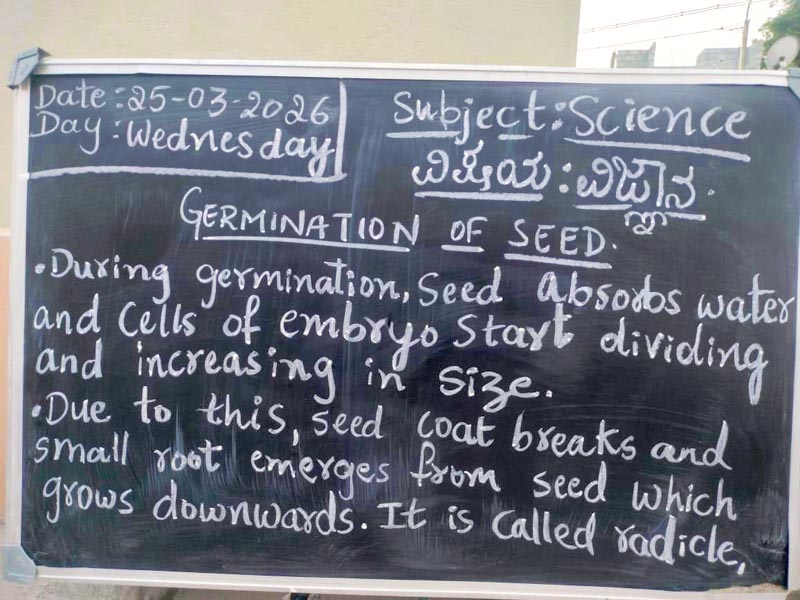 Date: 25-03-2026
Day: Wednesday
Subject: Science
ವಿಷಯ: ವಿಜ್ಞಾನ.
GERMINATION OF SEED.
• During germination, Seed absorbs water
and Cells of embryo Start dividing
and increasing in size.
• Due to this, seed coat breaks and
small root emerges from seed which
grows downwards. It is called radicle,